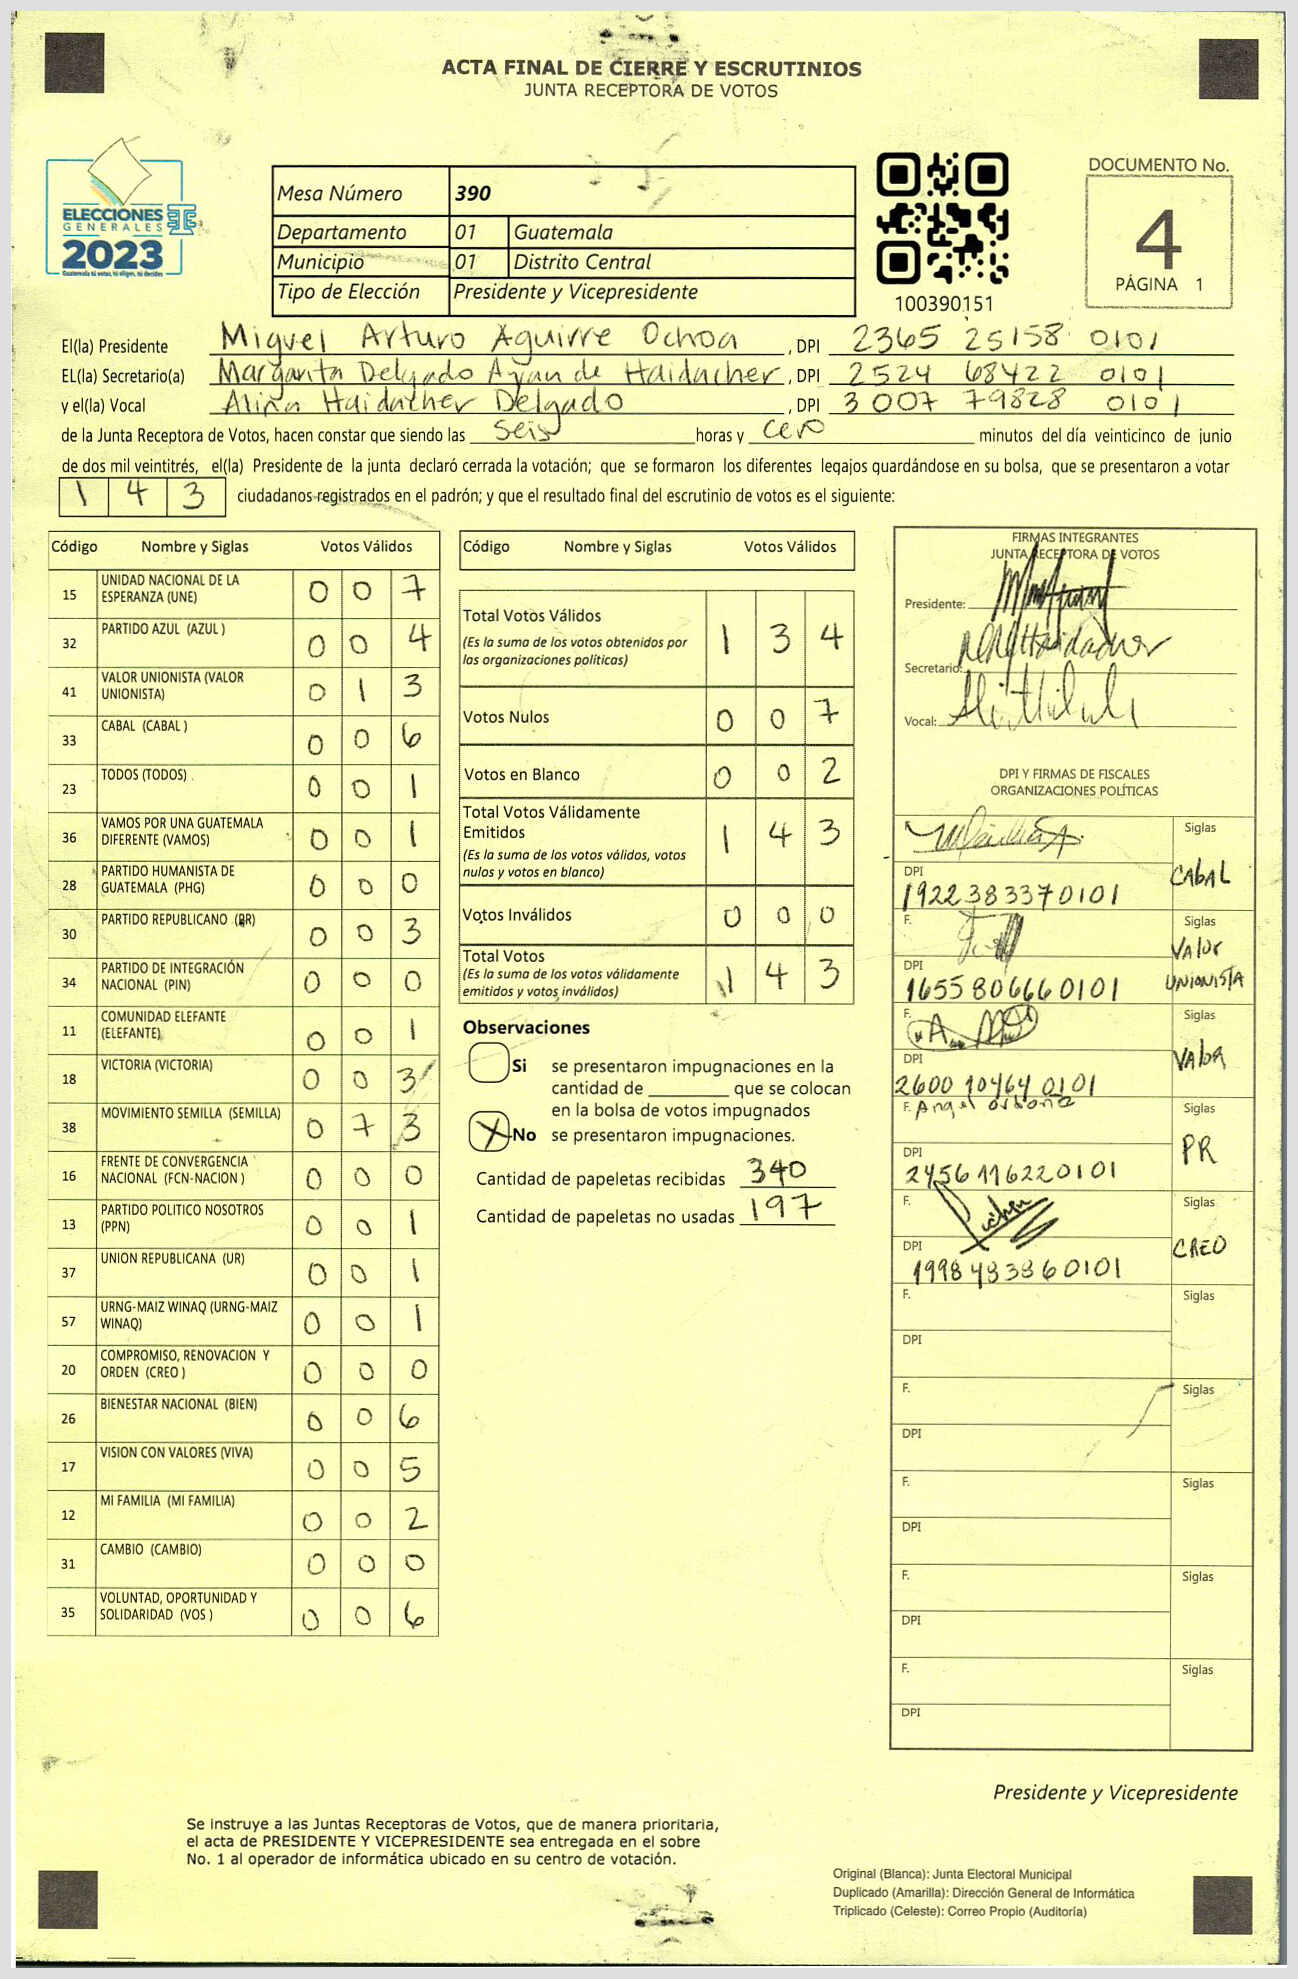 ACTA FINAL DE CIERRE Y ESCRUTINIOS
JUNTA RECEPTORA DE VOTOS
ELECCIONES
GENERALES
2023
Guatemala tú votas, tú eliges, tú decides
Mesa Número 390
Departamento 01 Guatemala
Municipio 01 Distrito Central
Tipo de Elección Presidente y Vicepresidente
100390151
DOCUMENTO No.
4
PÁGINA 1
El(la) Presidente Miguel Arturo Aguirre Ochoa, DPI 2365 25158 0101
EL(la) Secretario(a) Margarita Delgado Ayan de Haidacher, DPI 2524 68422 0101
y el(la) Vocal Alina Haidacher Delgado, DPI 3007 79828 0101
de la Junta Receptora de Votos, hacen constar que siendo las seis horas y cero minutos del día veinticinco de junio
de dos mil veintitrés, el(la) Presidente de la junta declaró cerrada la votación; que se formaron los diferentes legajos guardándose en su bolsa, que se presentaron a votar
1 4 3 ciudadanos registrados en el padrón; y que el resultado final del escrutinio de votos es el siguiente:
Código Nombre y Siglas Votos Válidos
15 UNIDAD NACIONAL DE LA ESPERANZA (UNE) 0 0 7
32 PARTIDO AZUL (AZUL ) 0 0 4
41 VALOR UNIONISTA (VALOR UNIONISTA) 0 1 3
33 CABAL (CABAL ) 0 0 6
23 TODOS (TODOS) 0 0 1
36 VAMOS POR UNA GUATEMALA DIFERENTE (VAMOS) 0 0 1
28 PARTIDO HUMANISTA DE GUATEMALA (PHG) 0 0 0
30 PARTIDO REPUBLICANO (PR) 0 0 3
34 PARTIDO DE INTEGRACIÓN NACIONAL (PIN) 0 0 0
11 COMUNIDAD ELEFANTE (ELEFANTE) 0 0 1
18 VICTORIA (VICTORIA) 0 0 3
38 MOVIMIENTO SEMILLA (SEMILLA) 0 7 3
16 FRENTE DE CONVERGENCIA NACIONAL (FCN-NACION ) 0 0 0
13 PARTIDO POLITICO NOSOTROS (PPN) 0 0 1
37 UNION REPUBLICANA (UR) 0 0 1
57 URNG-MAIZ WINAQ (URNG-MAIZ WINAQ) 0 0 1
20 COMPROMISO, RENOVACION Y ORDEN (CREO ) 0 0 0
26 BIENESTAR NACIONAL (BIEN) 0 0 6
17 VISION CON VALORES (VIVA) 0 0 5
12 MI FAMILIA (MI FAMILIA) 0 0 2
31 CAMBIO (CAMBIO) 0 0 0
35 VOLUNTAD, OPORTUNIDAD Y SOLIDARIDAD (VOS ) 0 0 6
Código Nombre y Siglas Votos Válidos
Total Votos Válidos 1 3 4
(Es la suma de los votos obtenidos por
las organizaciones políticas)
Votos Nulos 0 0 7
Votos en Blanco 0 0 2
Total Votos Válidamente
Emitidos 1 4 3
(Es la suma de los votos válidos, votos
nulos y votos en blanco)
Votos Inválidos 0 0 0
Total Votos 1 4 3
(Es la suma de los votos válidamente
emitidos y votos inválidos)
Observaciones
Si se presentaron impugnaciones en la
cantidad de ________ que se colocan
en la bolsa de votos impugnados
X No se presentaron impugnaciones.
Cantidad de papeletas recibidas 340
Cantidad de papeletas no usadas 197
FIRMAS INTEGRANTES
JUNTA RECEPTORA DE VOTOS
Presidente:
Secretario:
Vocal:
DPI Y FIRMAS DE FISCALES
ORGANIZACIONES POLÍTICAS
Siglas CABAL
DPI 1922383370101
F. Siglas VALOR UNIONISTA
DPI 1655806660101
F. Siglas VALOR
DPI 2600 10464 0101
F. Angel Siglas PR
DPI 2456116220101
F. Siglas CREO
DPI 1998483860101
F. Siglas
DPI
F. Siglas
DPI
F. Siglas
DPI
F. Siglas
DPI
F. Siglas
DPI
Presidente y Vicepresidente
Se instruye a las Juntas Receptoras de Votos, que de manera prioritaria,
el acta de PRESIDENTE Y VICEPRESIDENTE sea entregada en el sobre
No. 1 al operador de informática ubicado en su centro de votación.
Original (Blanca): Junta Electoral Municipal
Duplicado (Amarilla): Dirección General de Informática
Triplicado (Celeste): Correo Propio (Auditoría)